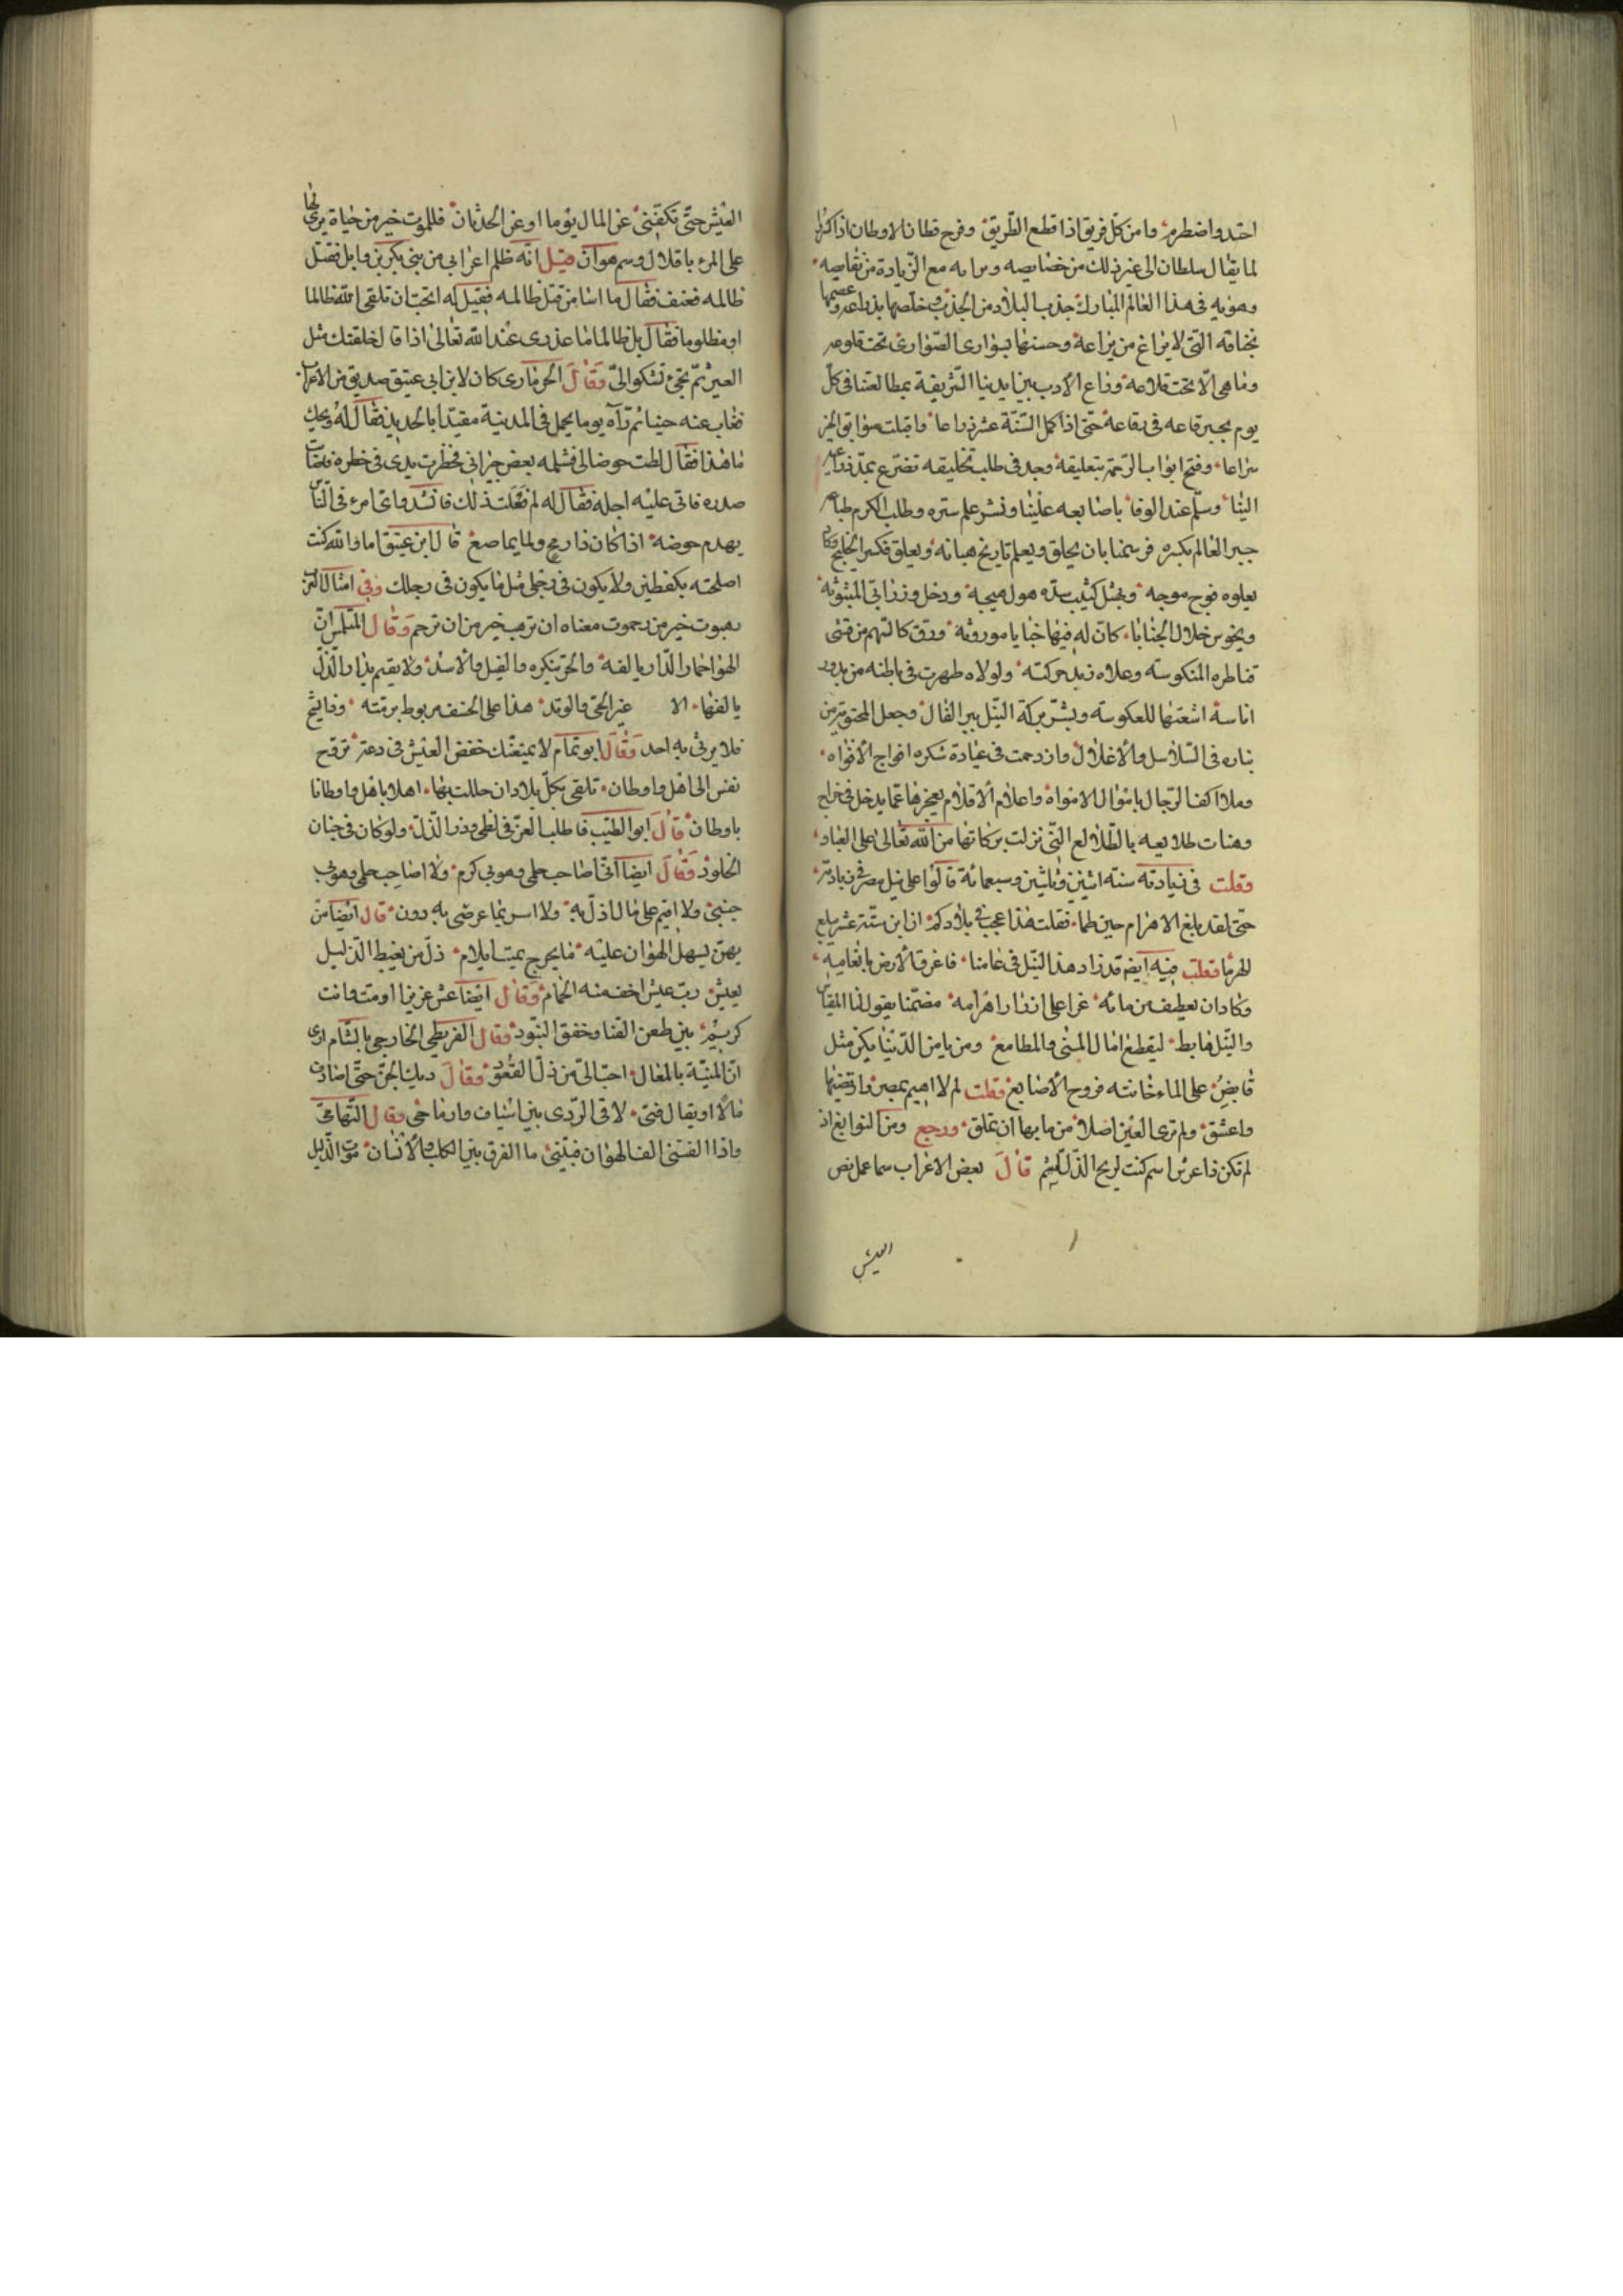 احتد واضطرم وما من كل فريق اذا قطع الطريق وفرح قطان الاوطان اذا
لما يقال سلطان الى غير ذلك من خصايصه مع الزيادة من نقايصه
وهو به فى هذا العالم المبارك جذب البلاد من الجدب وخلصها بذراعه وعصمها
بخناقه التى لا يراغ من يراعه وحصنها بسوارى الصوارى تحت قلوعه
وما هى الا تحت قلاعه وراع الأدب بين ايدينا الشريفة بمطالعتنا فى كل
يوم بخبر قاعه فى رقاعه حتى اذا اكمل الستة عشر ذراعا واقبلت سوابق الخير
سراعا وفتح ابواب الرحمة بتعليقه وجد فى طلب تخليقه تضرع بمد ذراعه
الينا وسلم عند الوفا باصابعه علينا ونشر علم ستره وطلب لكرم طباعه
جبر العالم بكسره فرسمنا بان يخلق ويعلم تاريخ هنائه ويعلق فكسر الخليج وكاد
يعلوه فوج موجه ويهيل كثيب سده هول هيجه ودخل ورزابى المبثوثة
ويجوس خلال الخبايا كان له فيها خبايا موروثة ومرق كالسهم من قسى
قناطره المنكوسة وعلاه زبد حركته ولولاه ظهرت فى باطنه من بدور
اناسه اشعتها المعكوسة وبشر ببركة النيل ببر الفال وجعل المجنونة من
تياره فى السلاسل والأغلال وازدحمت فى عبادة شكره افواج الأفواه
وملا اكف الرجال باموال الامواه واعلام ألاقلام بعجزها عما يدخل فى خراج
وهنات طلايعه بالطلالع التى نزلت بركاتها من الله تعالى على العباد
وقلت فى زيادته سنة اثنين وثلثين وسبعمائة قالوا على نيل مصر فى زيادته
حتى لقد بلغ الاهرام حين طما فقلت هذا عجب فى بلادكم ان ابن ستة عشر يبلغ
الهرما وقلت فيه ايضم قد زاد هذا النيل فى عامنا فاغرق الأرض بانعامه
وكاد ان يعطف من مائه عرا على ازرار اهرامه مضمنا يقول لنا المقياس
والنيل هابط ليقطع امال المنى والمطامع ومن يامن الدنيا يكن مثل
قابض على الماء خانته فروج الأصابع وقلت لم لا اهيم بمصر وارتضيها
واعشق ولم ترى العين اصلا من مايها ان تملق ورجع ومن النوابغ اذ
لم تكن ذا عرنين اشم كنت لريح الذل كلشم قال بعض الاعراب ساعمل نص
العيش
العيش حتى تكفنى غنى المال يوما او غنى الحدثان فللموت خير من حياة يرى لها
على المرء باقلال وسم هوان قيل انه ظلم اعرابى من بنى بكر بن وايل فقتل
ظالمه فعنف فقال ما اسا من قتل ظالمه فقيل له اتحب ان تلقى الله ظالما
او مظلوما فقال بل ظالما ما عذرى عند الله تعالى اذا قال خلقتك مثل
العير ثم تجئ تشكو الى وقال الحرمازى كان لابن ابى عتيق صديق من الاعراب
فغاب عنه حينا ثم رآه يوما يحمل فى المدينة مقيدا بالحديد فقال له ويحك
ما هذا فقال لطت حوضا لى فثلمه بعض جيرانى فخطرت يدى فى خطرة فصات
صدره فاتى عليه اجله فقال له لم فعلت ذلك فانشد واى امرء فى الناس
يهدم حوضه اذا كان ذا رمح ولما يماصع قال ابن عتيق اما والله كنت
اصلحته بكفطين ولا يكون فى رجلى مثل ما يكون فى رجلك وفى امثال العرب
رهبوت خير من رحموت معناه ان ترهب خير من ان ترحم وقال المتلمس ان
الهوا حمار الدار يالفه والحر ينكره والفيل والأسد ولا يقيم بدار الذل
يالفها الا عير الحى والوتد هذا على الخسف مربوط برمته وذا يشج
فلا يرثى به احد وقال ابو تمام لا يمنعنك خفض العيش فى دعة تروح
نفس الى اهل واوطان تلقى بكل بلاد ان حللت بها اهلا باهل واوطانا
باوطان قال ابو الطيب فاطلب العز فى لظى وذر الذل ولو كان فى جنان
الخلود وقال ايضا انى اصاحب حلمى وهو بى كرم ولا اصاحب حلمى وهو بى
جبن ولا اقيم على مال اذل به ولا اسر بما عرضى به دون قال ايضا من
يهن يسهل الهوان عليه ما بجرح بميت ايلام ذل من يغبط الذليل
بعيش رب عيش اخف منه الحمام وقال ايضا عش عزيزا او مت وانت
كريم بين طعن القنا وخفق البنود وقال القرمطى الخارجى بالشام ارى
ان المنية بالمعال احب الى من ذل القعود وقال ديك الجن حتى اصادف
مالا او يقال فتى لاقى الردى بين اسياف وارماحى وقال التهامى
واذا الفتى الف الهوان فبينى ما الفرق بين الكلب والأنسان موت الذليل